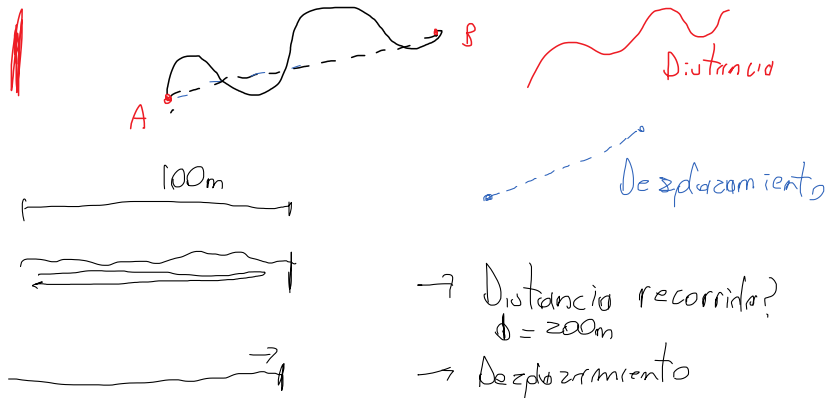 B
Distancia
A
100m
Desplazamiento
→ Distancia recorrida?
d = 200m
→ Desplazamiento